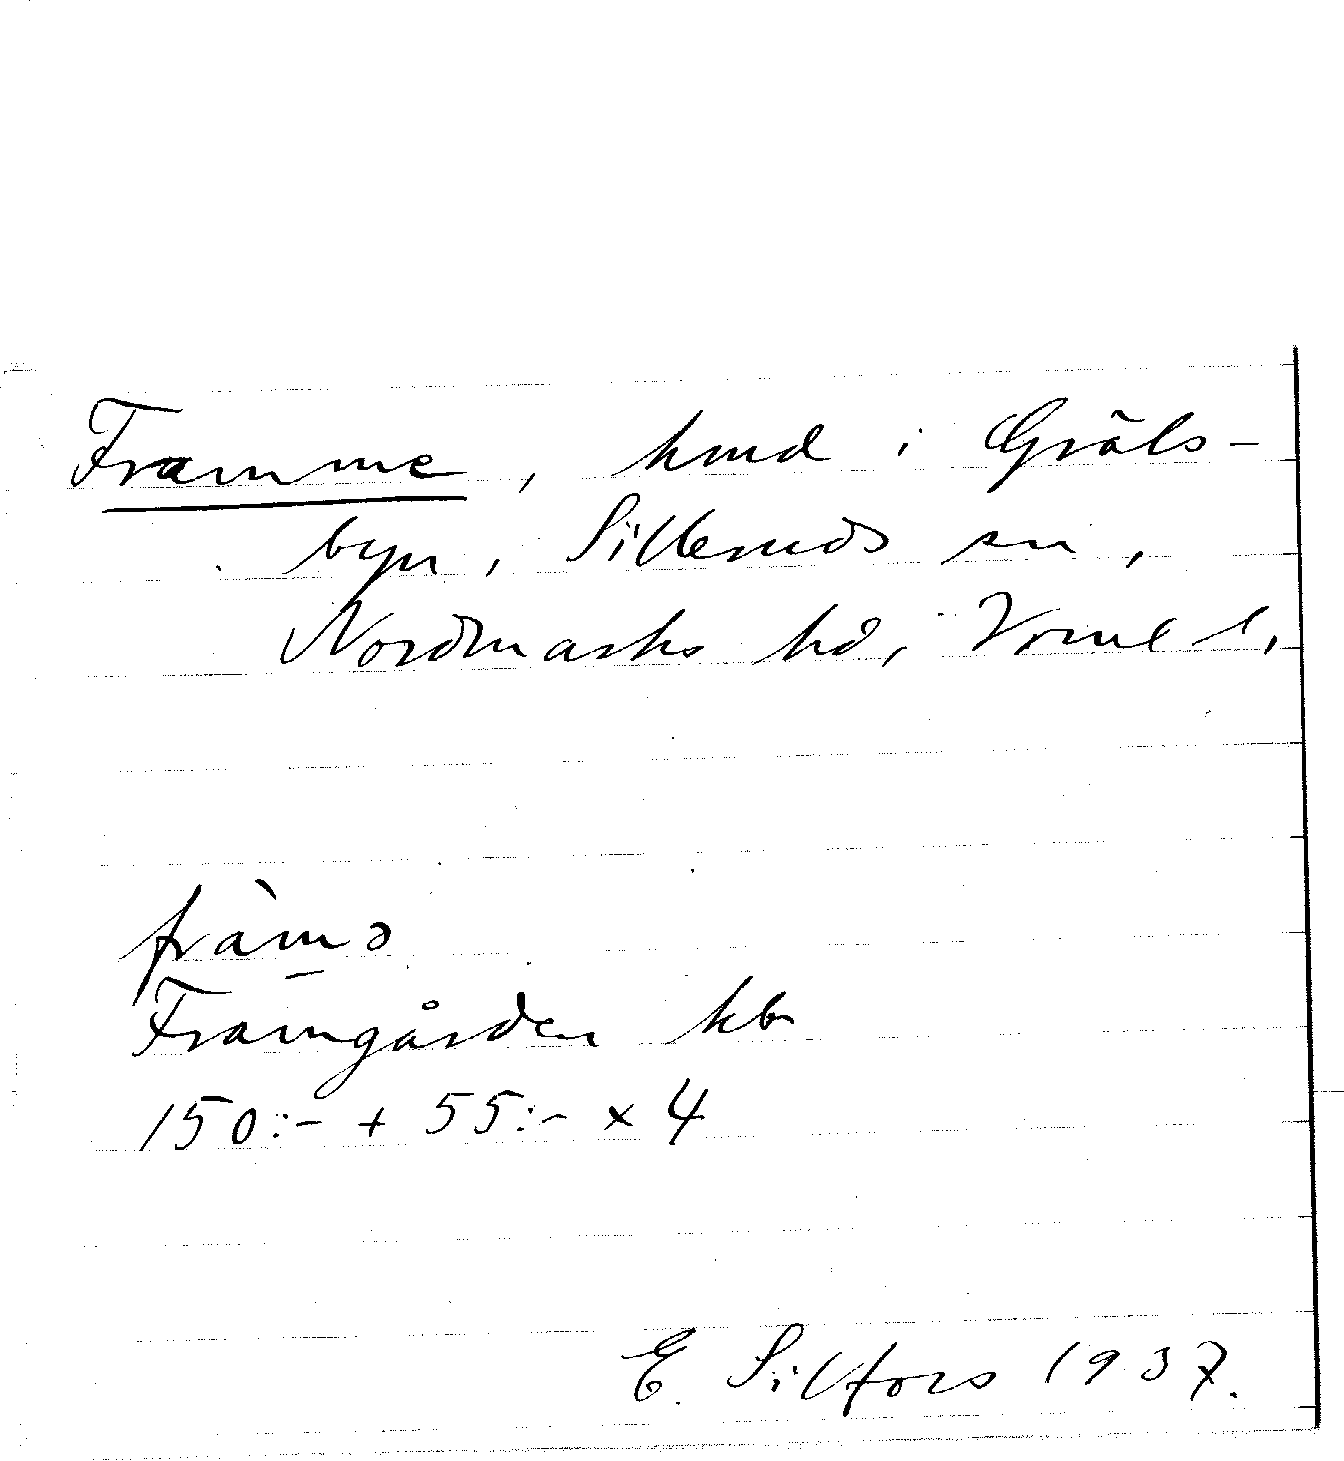 Framme, hmd i Gräls-
byn, Silleruds sn,
Nordmarks hd, Vrml l.
fràmə
Framgården kb
150:- + 55:- x 4
E. Silfors 1937.